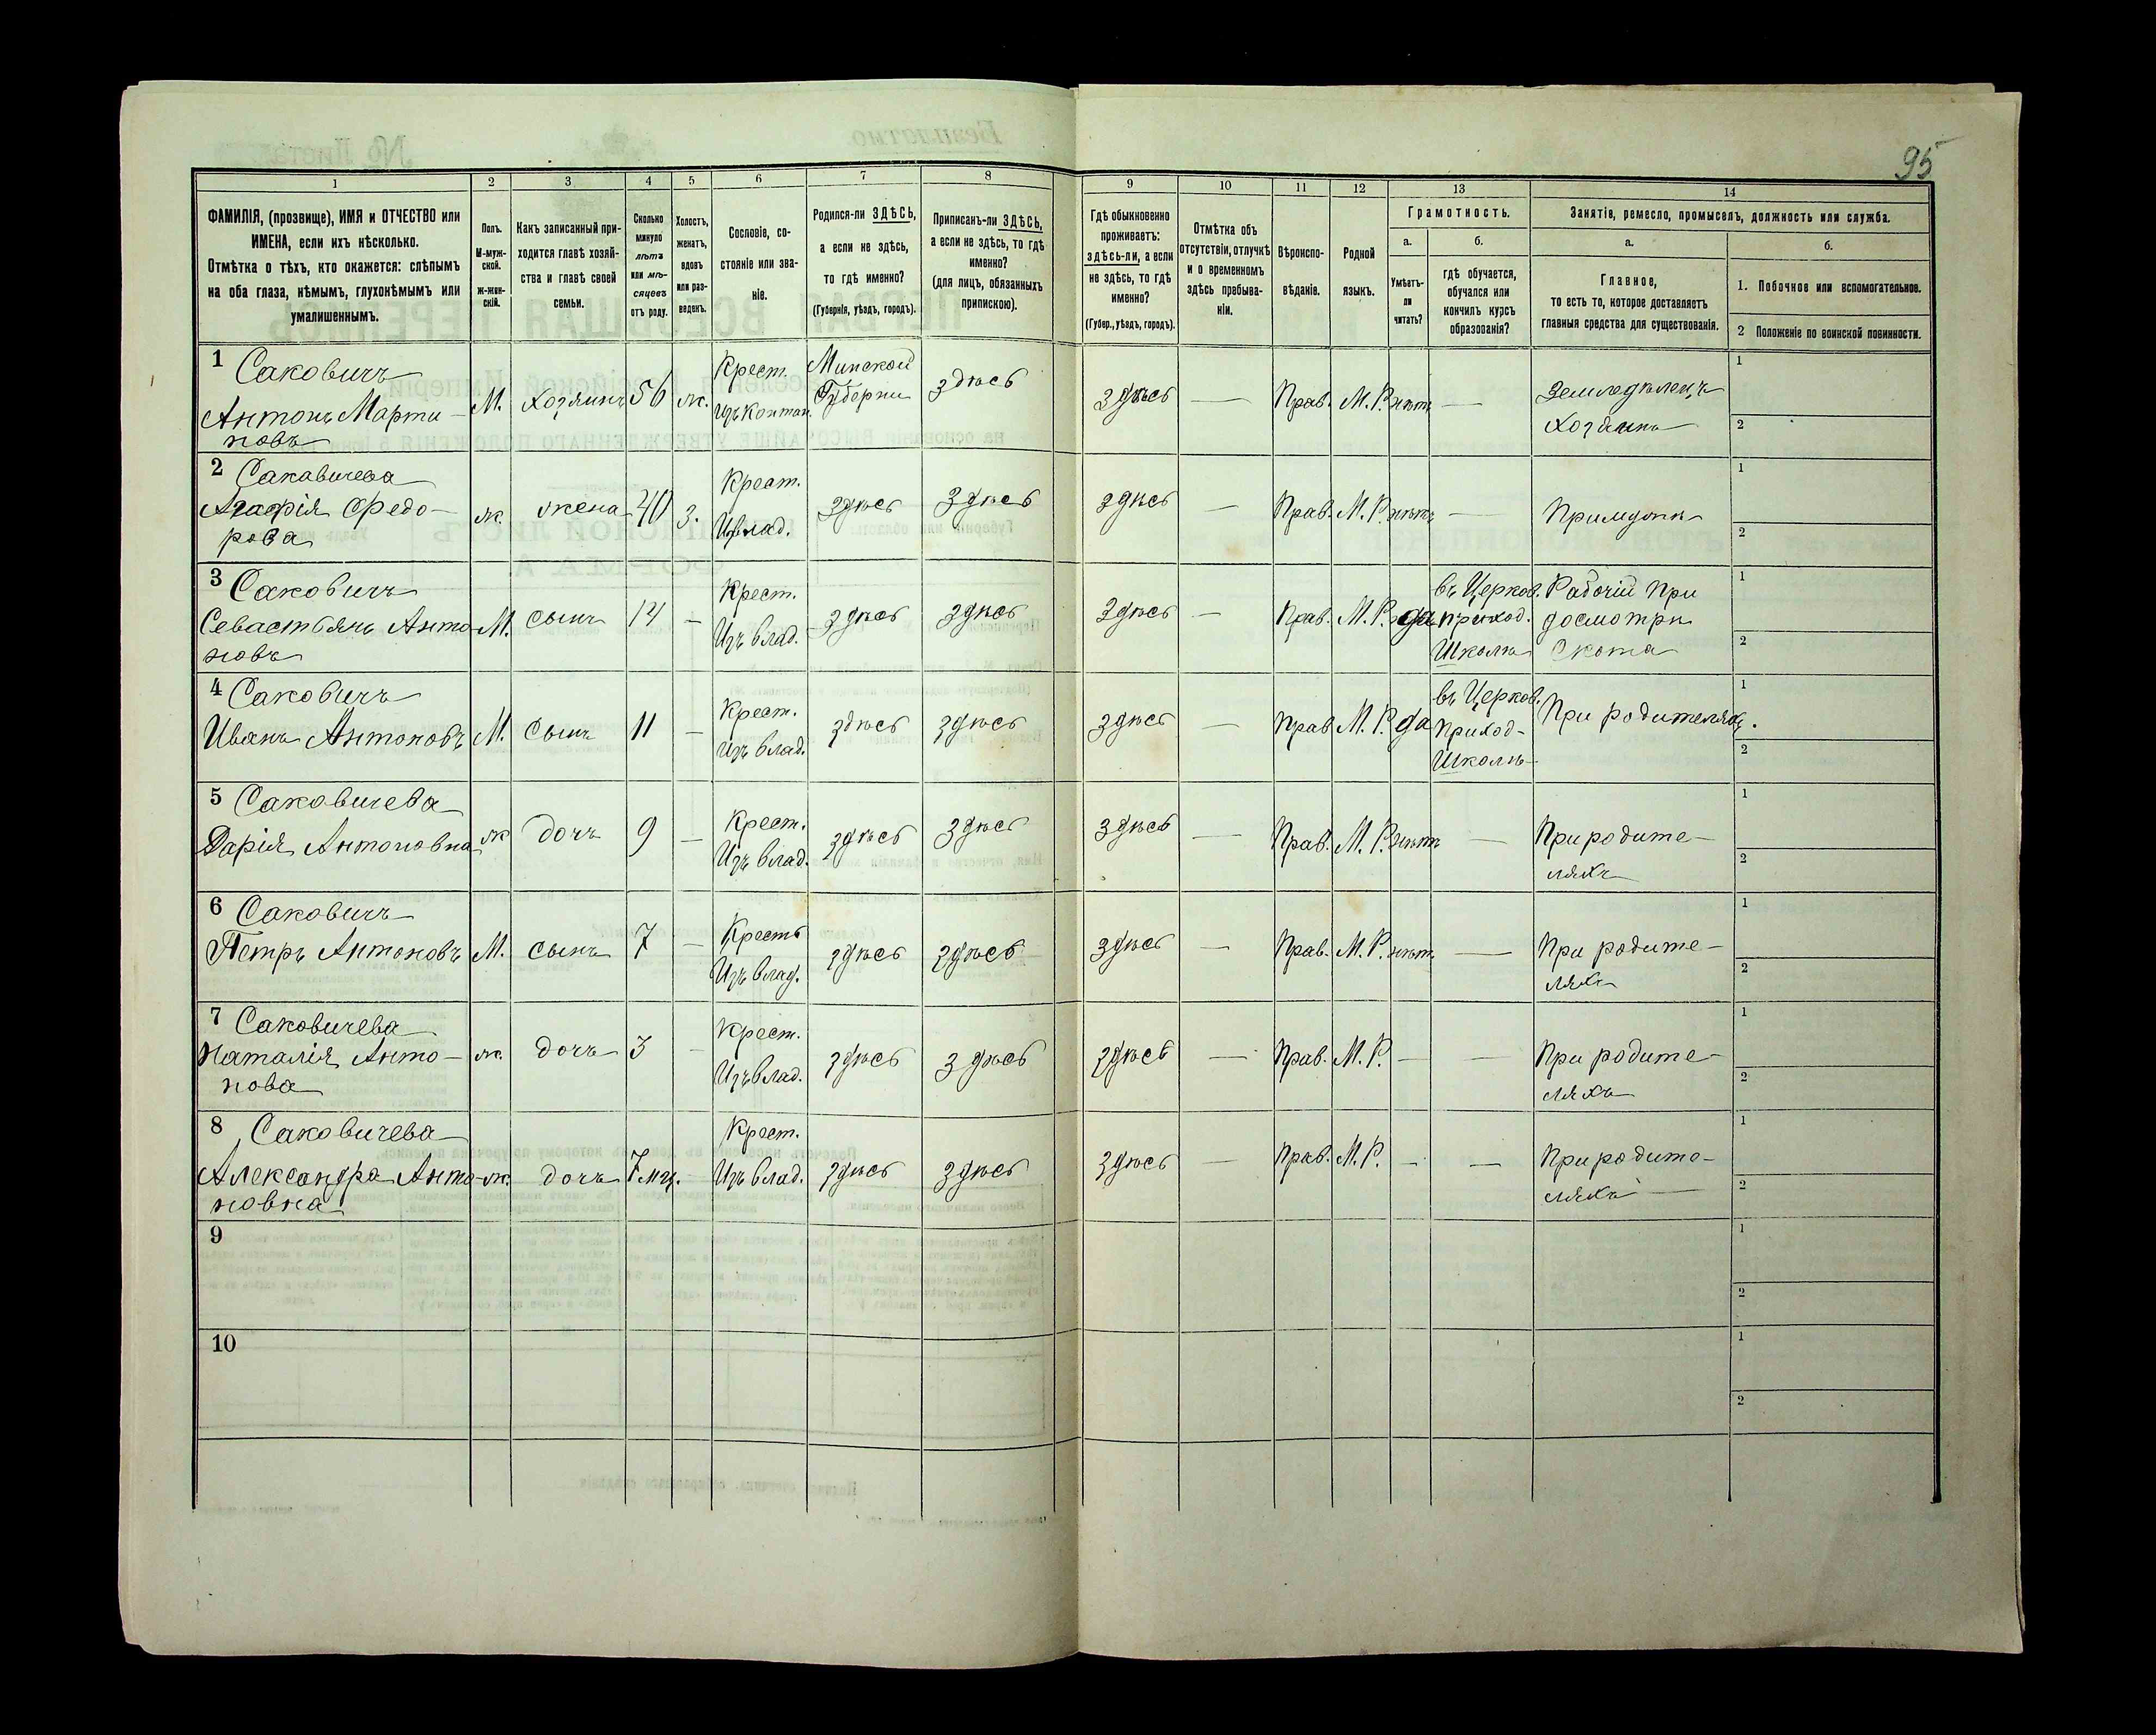 95
1
2
3
4
5
6
7
8
9
10
11
12
13
14
ФАМИЛІЯ, (прозвище), ИМЯ и ОТЧЕСТВО или
ИМЕНА, если ихъ нѣсколько.
Отмѣтка о тѣхъ, кто окажется: слѣпымъ
на оба глаза, нѣмымъ, глухонѣмымъ или
умалишеннымъ.
Полъ.
М-муж-
ской.
Ж-жен-
скій.
Какъ записанный при-
ходится главѣ хозяй-
ства и главѣ своей
семьи.
Сколько
минуло
лѣтъ
или мѣ-
сяцевъ
отъ роду.
Холостъ,
женатъ,
вдовъ
или раз-
веденъ.
Сословіе, со-
стояніе или зва-
ніе.
Родился-ли ЗДѢСЬ,
а если не здѣсь,
то гдѣ именно?
(Губернія, уѣздъ, городъ).
Приписанъ-ли ЗДѢСЬ,
а если не здѣсь, то гдѣ
именно?
(для лицъ, обязанныхъ
припискою).
Гдѣ обыкновенно
проживаетъ:
здѣсь-ли, а если
не здѣсь, то гдѣ
именно?
(Губер., уѣздъ, городъ).
Отмѣтка объ
отсутствіи, отлучкѣ
и о временномъ
здѣсь пребыва-
ніи.
Вѣроиспо-
вѣданіе.
Родной
языкъ.
Грамотность.
а.
Умѣетъ-
ли
читать?
б.
гдѣ обучается,
обучался или
кончилъ курсъ
образованія?
Занятіе, ремесло, промыселъ, должность или служба.
а.
Главное,
то есть то, которое доставляетъ
главныя средства для существованія.
б.
1. Побочное или вспомогательное.
2 Положеніе по воинской повинности.
1 Саковичъ
Антонъ Марти-
новъ
М. Хозяинъ 56 ж.
Крест.
Минской
Губерни
здѣсь
здѣсь — Прав. М. Р. нѣтъ —
Земледѣлецъ
Хозяинъ
1
2
2 Сакавичева
Агафія Федо-
рова
ж. жена 40 з.
Крест.
Изъ влад.
здѣсь здѣсь здѣсь — Прав. М. Р. нѣтъ —
1
2
3 Саковичъ
Севастьянъ Анто-
новъ
М. сынъ 14 —
Крест.
Изъ влад.
здѣсь здѣсь здѣсь — Прав. М. Р. да
въ Церков.
приход.
Школѣ
Рабочій При
досмотрѣ
Скота
1
2
4 Саковичъ
Иванъ Антоновъ
М. Сынъ 11 —
Крест.
Изъ влад.
здѣсь здѣсь здѣсь — Прав М. Р. да
въ Церков.
Приход-
Школѣ
При родителяхъ.
1
2
5 Саковичева
Дарія Антоновна
ж дочь 9 —
Крест.
Изъ влад.
здѣсь здѣсь здѣсь — Прав. М. Р. нѣтъ —
При родите-
ляхъ
1
2
6 Саковичъ
Петръ Антоновъ
М. сынъ 7 —
Кресть
Изъ влад.
здѣсь здѣсь здѣсь — Прав. М. Р. нѣтъ —
При родите-
ляхъ
1
2
7 Саковичева
Наталія Анто-
нова
ж. дочь 3 —
Крест.
Изъ влад.
здѣсь здѣсь здѣсь — Прав. М. Р. — —
При родите-
ляхъ
1
2
8 Саковичева
Александра Анто-
новна
ж. дочь 7 мц. —
Крест.
Изъ влад.
здѣсь здѣсь здѣсь — Прав. М. Р. — —
При родите-
ляхъ —
1
2
9
1
2
10
1
2